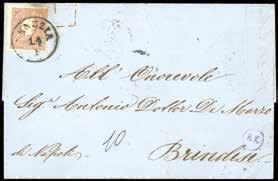 14
All' Onorevole
Sigr Antonio Dottor De Marzo
10
di Napoli
Brindisi